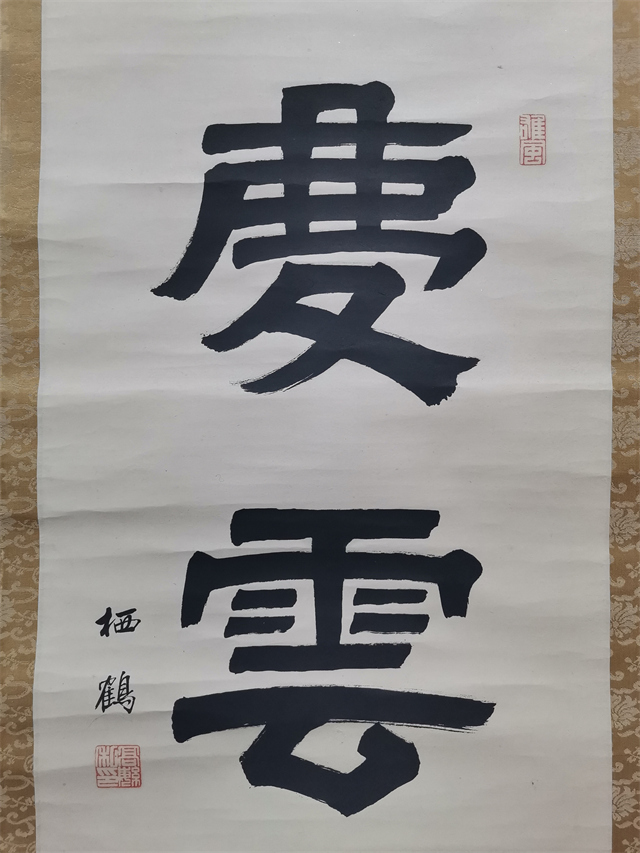 慶雲
栖鶴